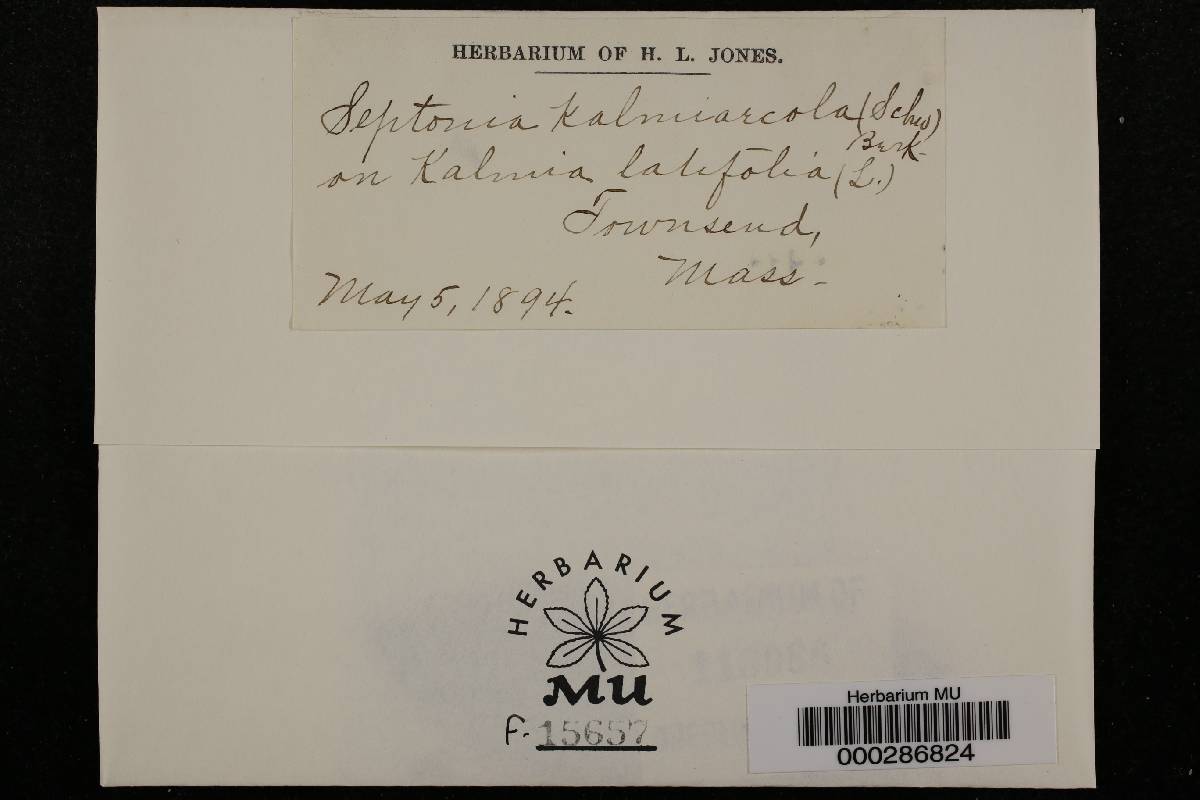 HERBARIUM OF H. L. JONES.
Septonia Kalmiaecola (Schw)
Berk.
on Kalmia latifolia (L.)
Townsend,
Mass.
May 5, 1894.
HERBARIUM
MU
F. 15657
Herbarium MU
000286824